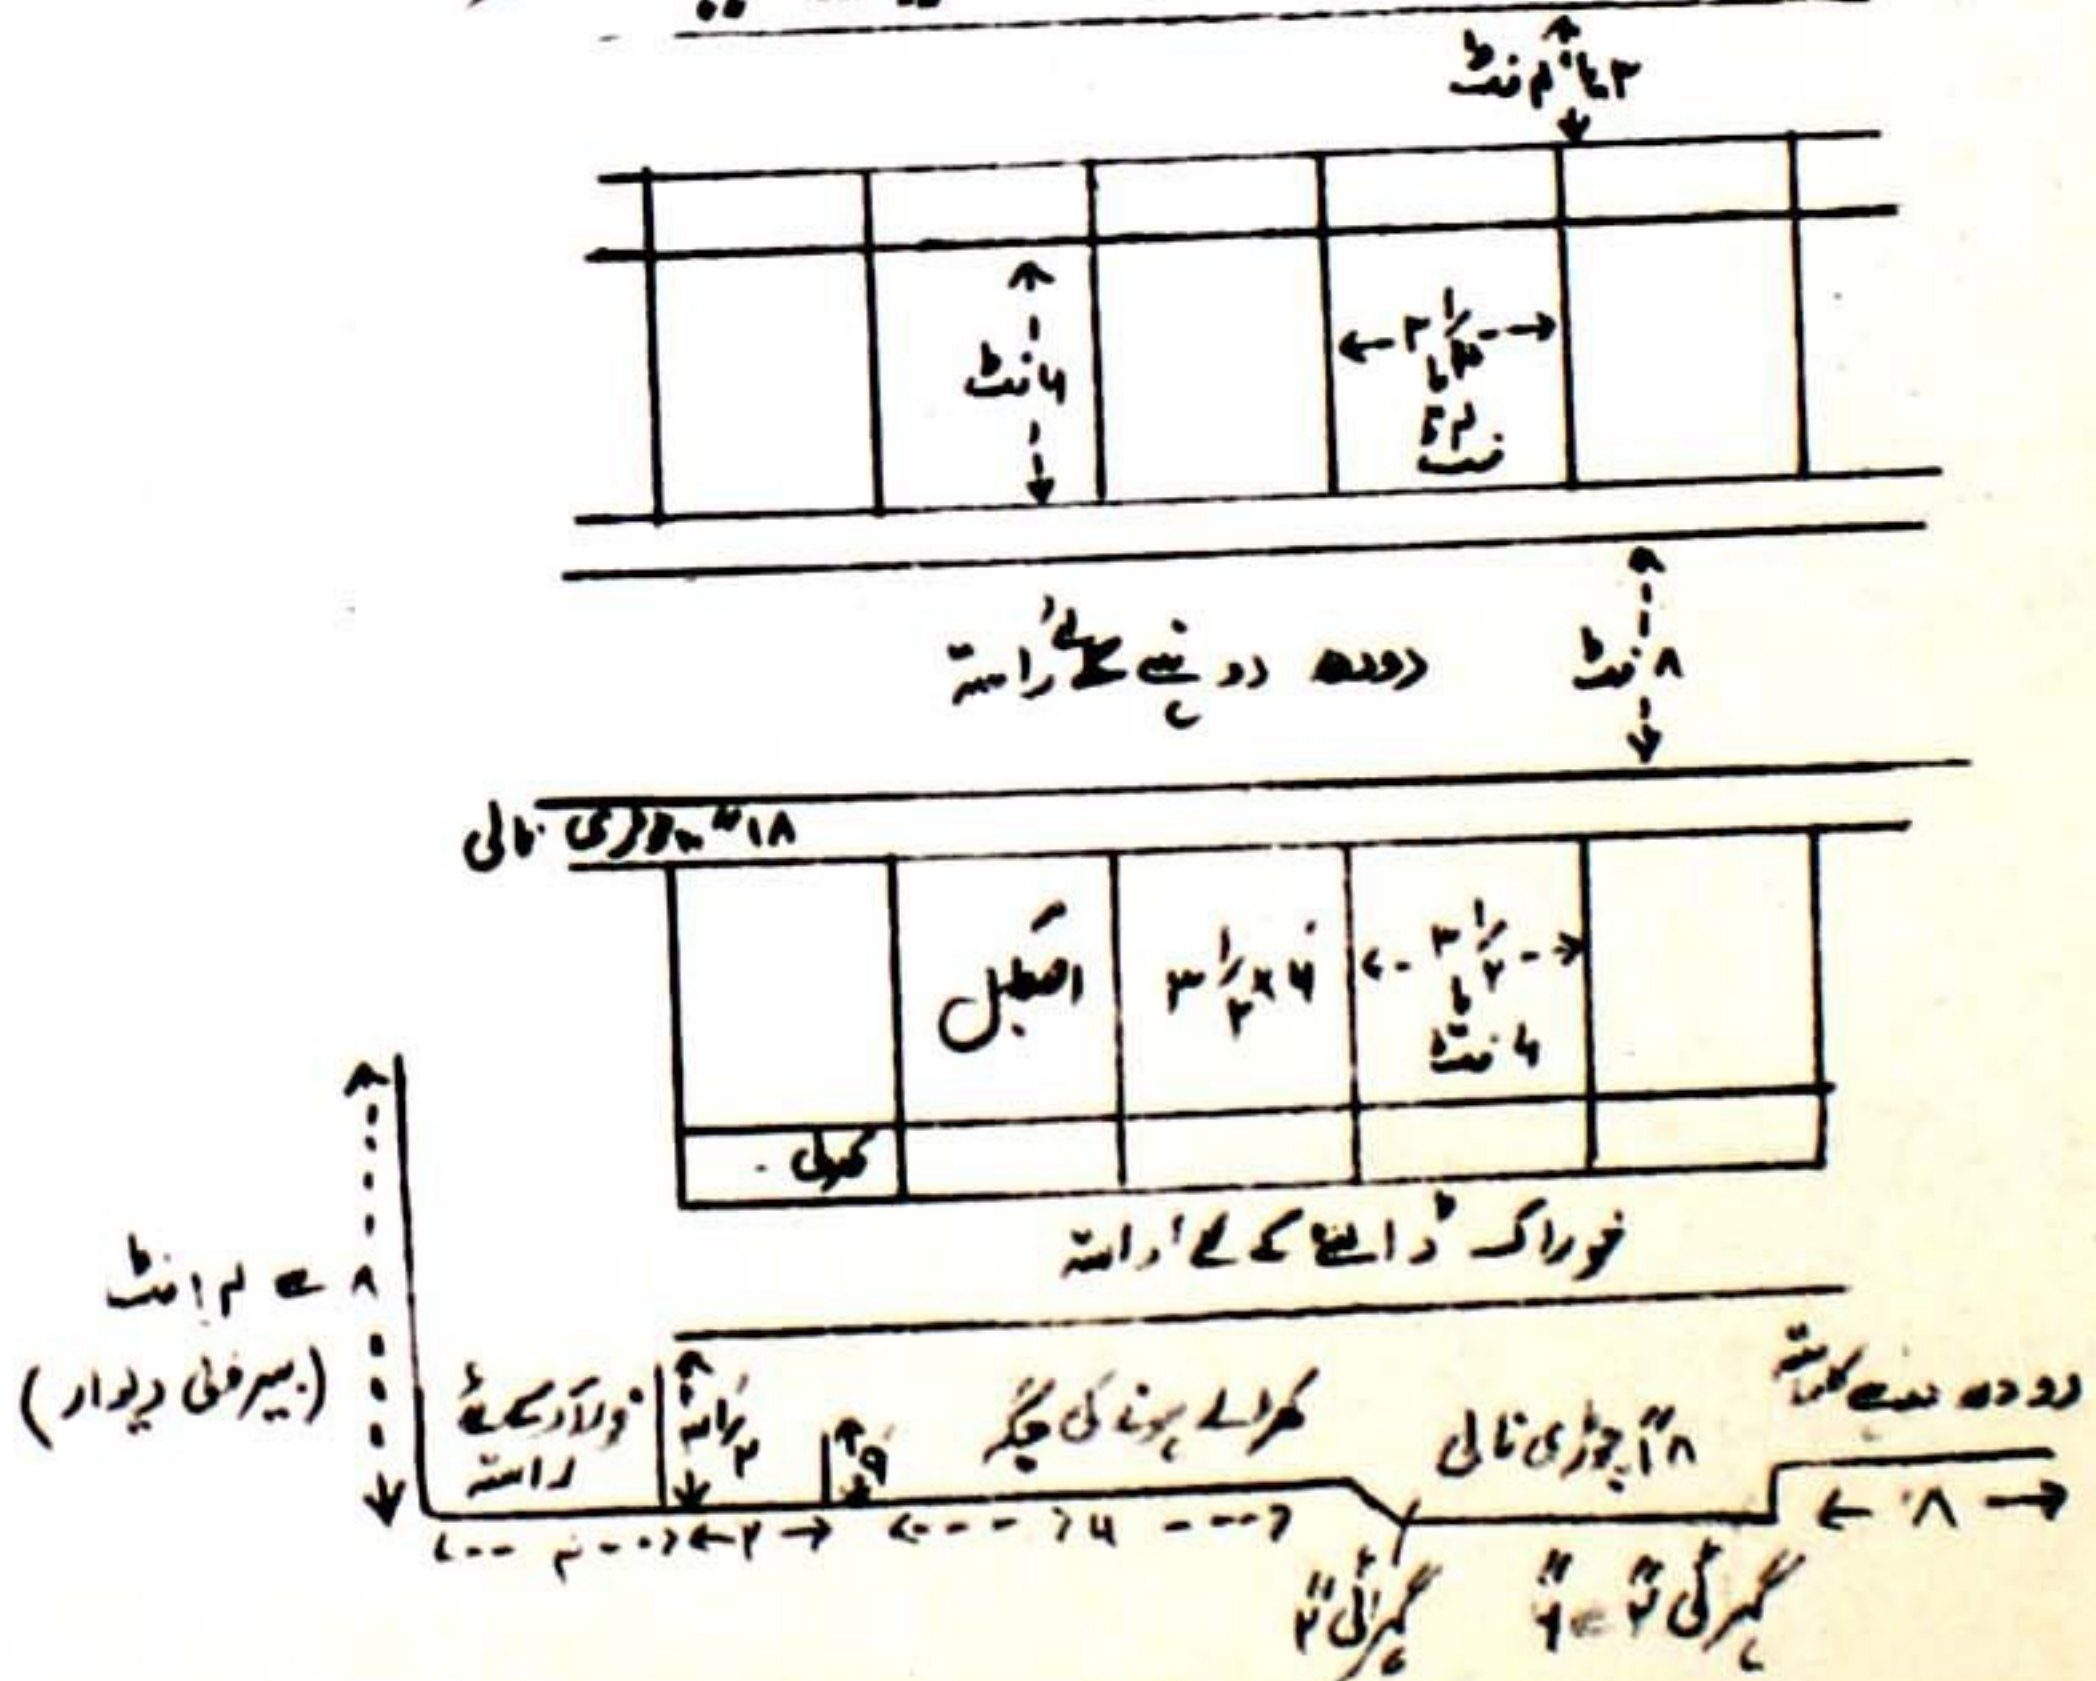 ۳ تا ۴ فٹ
۶ فٹ
۳ ۱/۲
تا
۴
فٹ
دودھ دوہنے کے لئے راستہ
۸ فٹ
۱۸" چوڑی نالی
اصطبل
۳ ۱/۲ × ۶
۳ ۱/۲
تا
۴ فٹ
کھرلی
خوراک ڈالنے کے لئے راستہ
۸ سے ۱۰ فٹ
(بیرونی دیوار)
راستہ
۹
کھڑے ہونے کی جگہ
۱۸" چوڑی نالی
دودھ
۴
۲
۶
۸
گہرائی ۲"
گہرائی